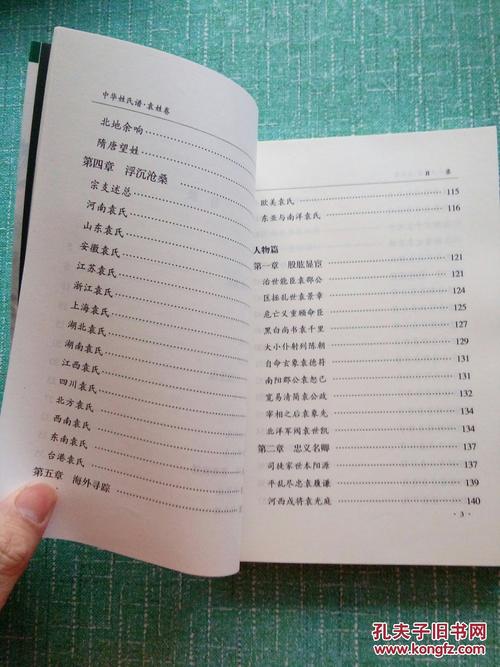 中华姓氏谱·袁姓卷
北地余响
隋唐望姓
第四章 浮沉沧桑
宗支述总
河南袁氏
山东袁氏
安徽袁氏
江苏袁氏
浙江袁氏
上海袁氏
湖北袁氏
湖南袁氏
江西袁氏
四川袁氏
北方袁氏
西南袁氏
东南袁氏
台港袁氏
第五章 海外寻踪
目 录
欧美袁氏 115
东亚与南洋袁氏 116
人物篇
第一章 股肱显宦 121
治世能臣袁郡公 121
匡摇乱世袁景章 124
危亡又重顾命臣 125
黑白尚书袁千里 127
大小仆射列陈朝 130
自命玄象袁德符 131
南阳郡公袁恕己 131
宽易清简袁公政 134
宰相之后袁象先 134
北洋军阀袁世凯 134
第二章 忠义名卿 137
司徒家世本阳源 137
平乱尽忠袁履谦 139
河西戍将袁光庭 140
·3·
孔夫子旧书网
www.kongfz.com